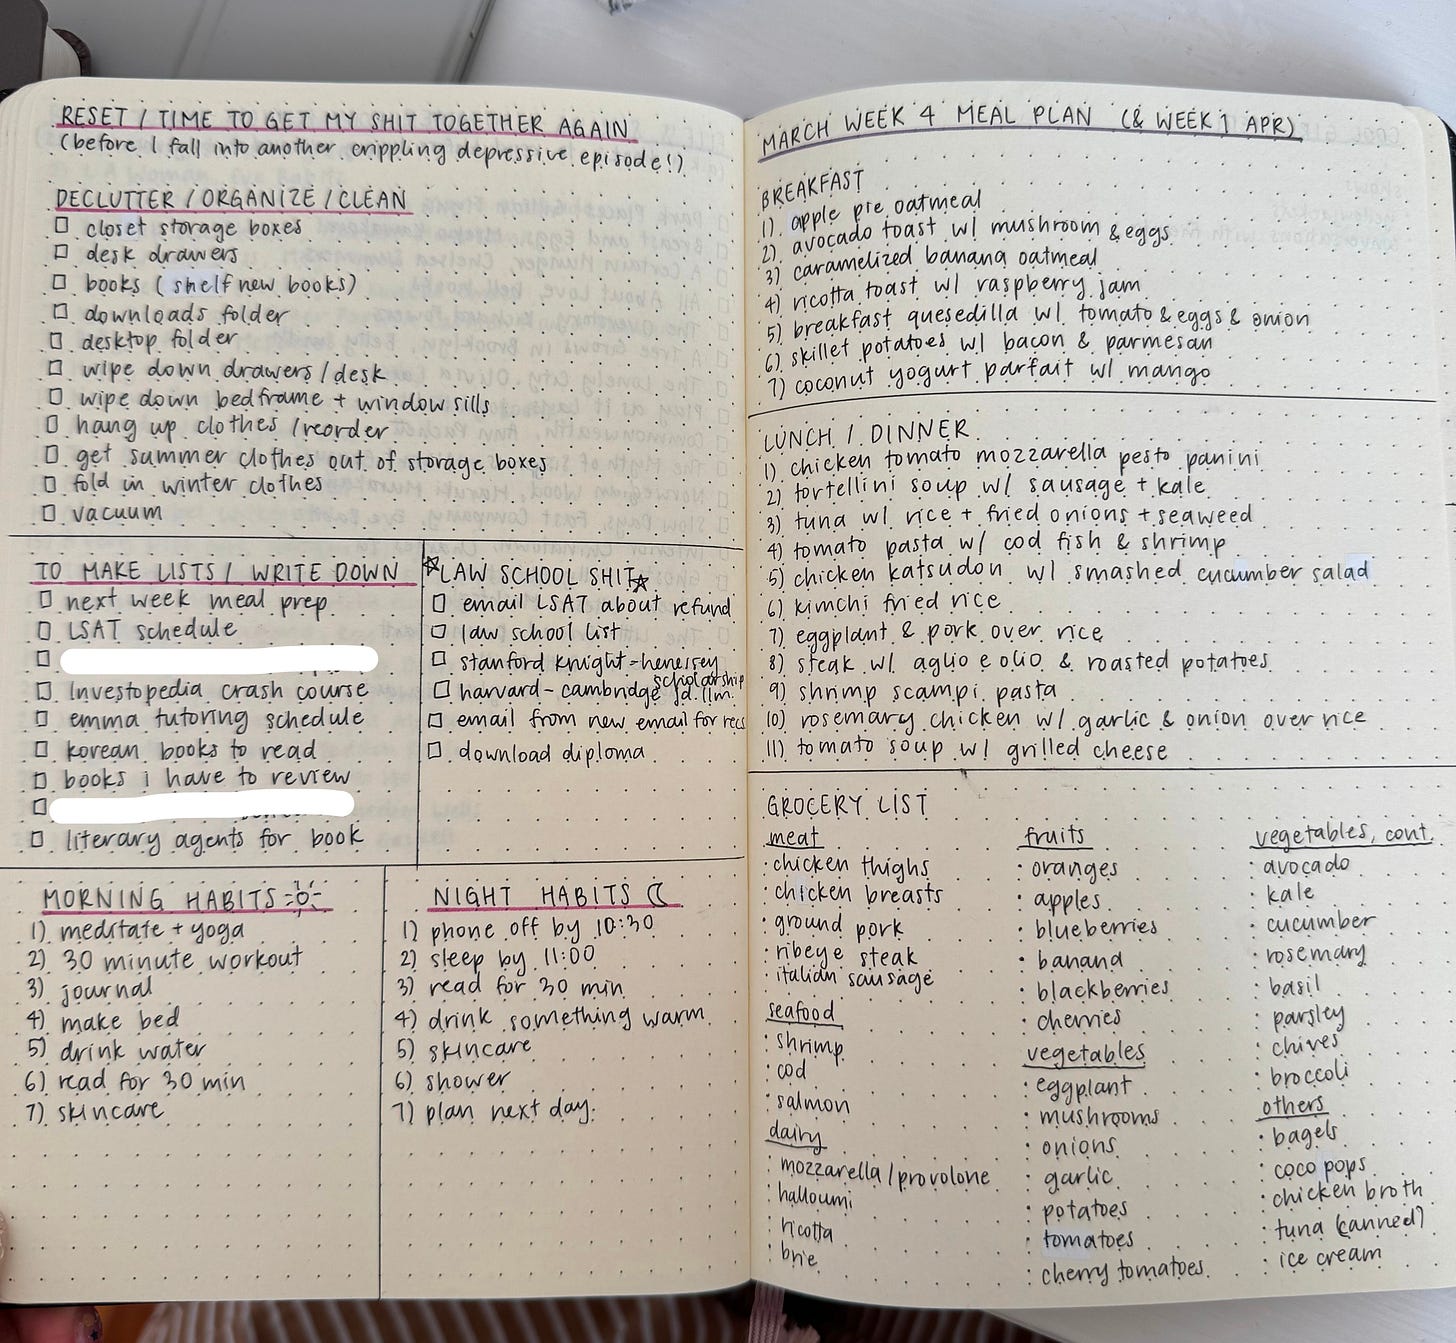 RESET / TIME TO GET MY SHIT TOGETHER AGAIN
(before I fall into another crippling depressive episode!)
DECLUTTER / ORGANIZE / CLEAN
□ closet storage boxes
□ desk drawers
□ books (shelf new books)
□ downloads folder
□ desktop folder
□ wipe down drawers / desk
□ wipe down bedframe + window sills
□ hang up clothes / reorder
□ get summer clothes out of storage boxes
□ fold in winter clothes
□ vacuum
TO MAKE LISTS / WRITE DOWN
□ next week meal prep
□ LSAT schedule
□
□ Investopedia crash course
□ emma tutoring schedule
□ korean books to read
□ books i have to review
□
□ literary agents for book
☆LAW SCHOOL SHIT☆
□ email LSAT about refund
□ law school list
□ stanford knight-henessey
scholarship
□ harvard-cambridge jd.llm.
□ email from new email for recs
□ download diploma
MORNING HABITS
1) meditate + yoga
2) 30 minute workout
3) journal
4) make bed
5) drink water
6) read for 30 min
7) skincare
NIGHT HABITS
1) phone off by 10:30
2) sleep by 11:00
3) read for 30 min
4) drink something warm
5) skincare
6) shower
7) plan next day.
MARCH WEEK 4 MEAL PLAN (& WEEK 1 APR)
BREAKFAST
1) apple pie oatmeal
2) avocado toast w/ mushroom & eggs
3) caramelized banana oatmeal
4) ricotta toast w/ raspberry jam
5) breakfast quesedilla w/ tomato & eggs & onion
6) skillet potatoes w/ bacon & parmesan
7) coconut yogurt parfait w/ mango
LUNCH / DINNER
1) chicken tomato mozzarella pesto panini
2) tortellini soup w/ sausage + kale
3) tuna w/ rice + fried onions + seaweed
4) tomato pasta w/ cod fish & shrimp
5) chicken katsudon w/ smashed cucumber salad
6) kimchi fried rice
7) eggplant & pork over rice
8) steak w/ aglio e olio & roasted potatoes
9) shrimp scampi pasta
10) rosemary chicken w/ garlic & onion over rice
11) tomato soup w/ grilled cheese
GROCERY LIST
meat
· chicken thighs
· chicken breasts
· ground pork
· ribeye steak
· italian sausage
seafood
· shrimp
· cod
· salmon
dairy
· mozzarella / provolone
· halloumi
· ricotta
· brie
fruits
· oranges
· apples
· blueberries
· banana
· blackberries
· cherries
vegetables
· eggplant
· mushrooms
· onions
· garlic
· potatoes
· tomatoes
· cherry tomatoes
vegetables, cont.
· avocado
· kale
· cucumber
· rosemary
· basil
· parsley
· chives
· broccoli
others
· bagels
· coco pops
· chicken broth
· tuna (canned)
· ice cream